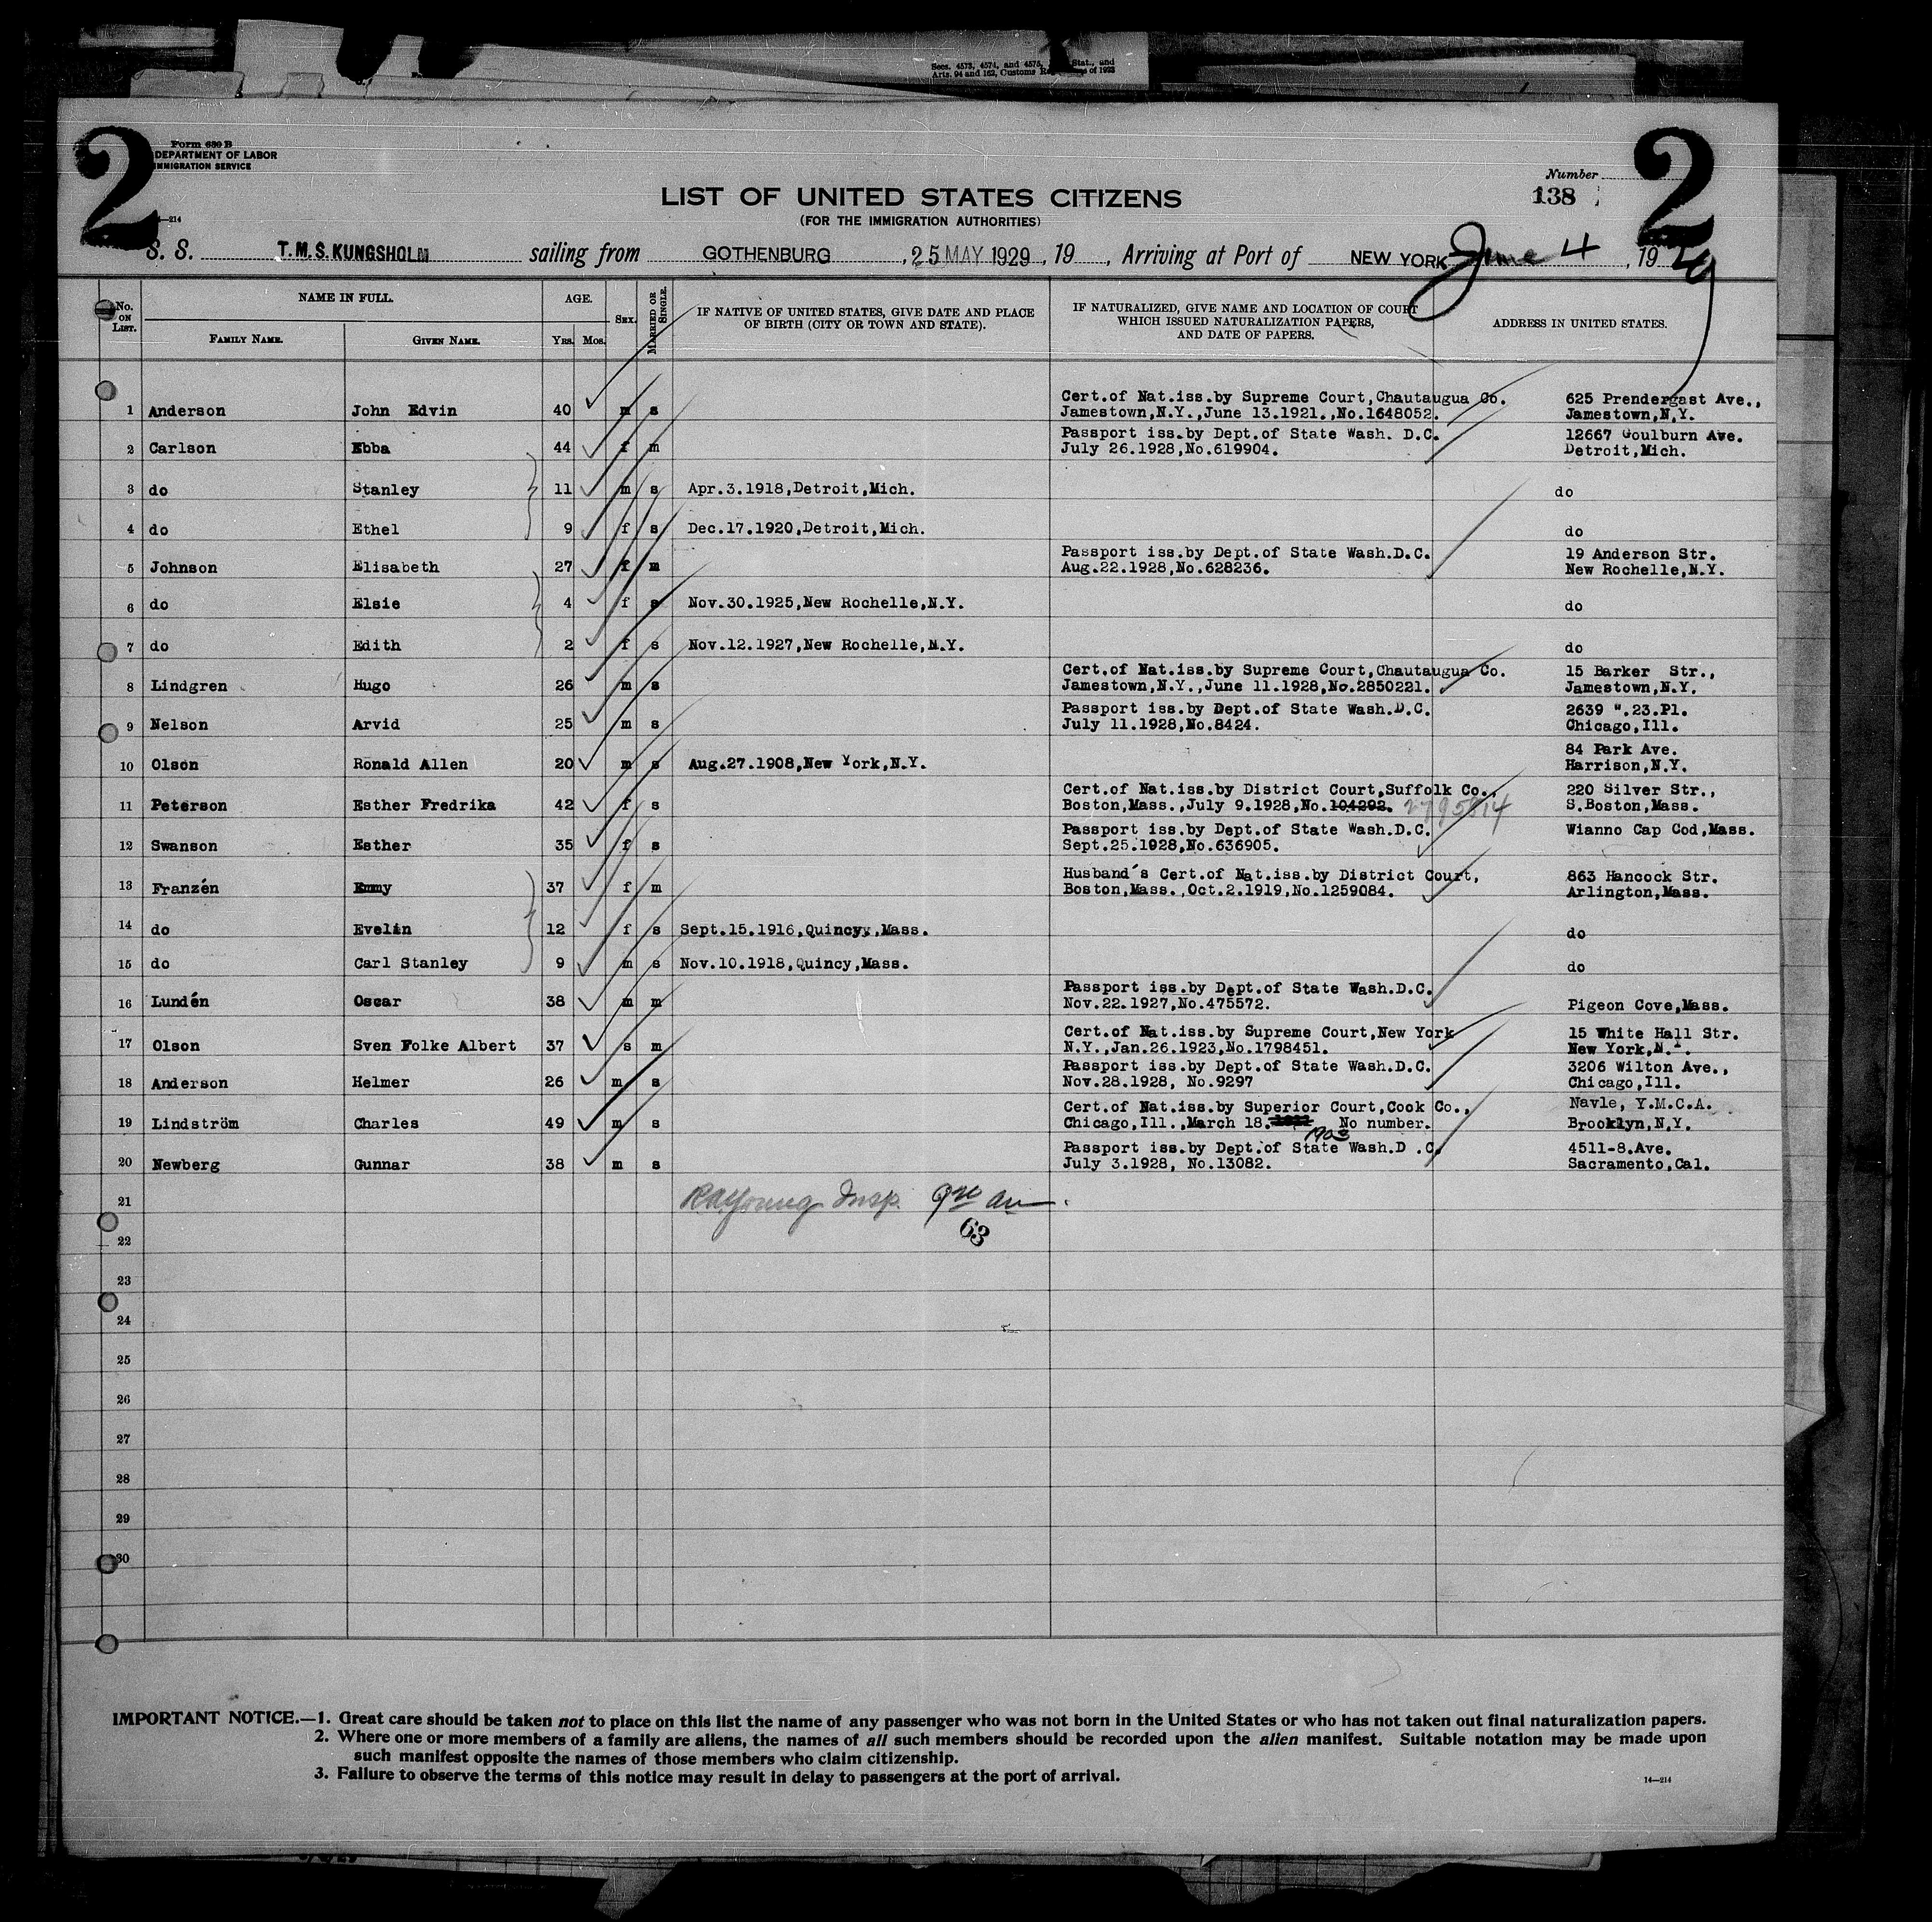 Secs. 4573, 4574, and 4575, Stat., and
Arts. 94 and 162, Customs of 1923
2
Form 630 B
DEPARTMENT OF LABOR
IMMIGRATION SERVICE
—214
Number
138
2
LIST OF UNITED STATES CITIZENS
(FOR THE IMMIGRATION AUTHORITIES)
S. S. T.M.S. KUNGSHOLM sailing from GOTHENBURG , 25 MAY 1929 , 19 , Arriving at Port of NEW YORK June 4 , 1929
No. ON LIST.
NAME IN FULL.
FAMILY NAME.
GIVEN NAME.
AGE.
YRS. MOS.
SEX.
MARRIED OR SINGLE.
IF NATIVE OF UNITED STATES, GIVE DATE AND PLACE
OF BIRTH (CITY OR TOWN AND STATE).
IF NATURALIZED, GIVE NAME AND LOCATION OF COURT
WHICH ISSUED NATURALIZATION PAPERS,
AND DATE OF PAPERS.
ADDRESS IN UNITED STATES.
Cert.of Nat.iss.by Supreme Court,Chautaugua Co. 625 Prendergast Ave.,
1 Anderson John Edvin 40 m s Jamestown,N.Y.,June 13.1921.,No.1648052. Jamestown,N.Y.
Passport iss.by Dept.of State Wash. D.C. 12667 Goulburn Ave.
2 Carlson Ebba 44 f m July 26.1928,No.619904. Detroit,Mich.
3 do Stanley 11 m s Apr.3.1918,Detroit,Mich. do
4 do Ethel 9 f s Dec.17.1920,Detroit,Mich. do
Passport iss.by Dept.of State Wash.D.C. 19 Anderson Str.
5 Johnson Elisabeth 27 f m Aug.22.1928,No.628236. New Rochelle,N.Y.
6 do Elsie 4 f s Nov.30.1925,New Rochelle,N.Y. do
7 do Edith 2 f s Nov.12.1927,New Rochelle,N.Y. do
Cert.of Nat.iss.by Supreme Court,Chautaugua Co. 15 Barker Str.,
8 Lindgren Hugo 26 m s Jamestown,N.Y.,June 11.1928,No.2850221. Jamestown,N.Y.
Passport iss.by Dept.of State Wash.D.C. 2639 ".23.Pl.
9 Nelson Arvid 25 m s July 11.1928,No.8424. Chicago,Ill.
84 Park Ave.
10 Olson Ronald Allen 20 m s Aug.27.1908,New York,N.Y. Harrison,N.Y.
Cert.of Nat.iss.by District Court,Suffolk Co., 220 Silver Str.,
11 Peterson Esther Fredrika 42 f s Boston,Mass.,July 9.1928,No.104292. 2795814 S.Boston,Mass.
Passport iss.by Dept.of State Wash.D.C. Wianno Cap Cod,Mass.
12 Swanson Esther 35 f s Sept.25.1928,No.636905.
Husband´s Cert.of Nat.iss.by District Court, 863 Hancock Str.
13 Franzén Emmy 37 f m Boston,Mass.,Oct.2.1919,No.1259084. Arlington,Mass.
14 do Evelin 12 f s Sept.15.1916,Quincy,Mass. do
15 do Carl Stanley 9 m s Nov.10.1918,Quincy,Mass. do
Passport iss.by Dept.of State Wash.D.C.
16 Lundén Oscar 38 m m Nov.22.1927,No.475572. Pigeon Cove,Mass.
Cert.of Nat.iss.by Supreme Court,New York 15 White Hall Str.
17 Olson Sven Folke Albert 37 s m N.Y.,Jan.26.1923,No.1798451. New York,N.Y.
Passport iss.by Dept.of State Wash.D.C. 3206 Wilton Ave.,
18 Anderson Helmer 26 m s Nov.28.1928, No.9297 Chicago,Ill.
Cert.of Nat.iss.by Superior Court,Cook Co., Navle, Y.M.C.A.
19 Lindström Charles 49 m s Chicago,Ill.,March 18. 1903 No number. Brooklyn,N.Y.
Passport iss.by Dept.of State Wash.D .C. 4511-8.Ave.
20 Newberg Gunnar 38 m s July 3.1928, No.13082. Sacramento,Cal.
21 Young Insp.
63
22
23
24
25
26
27
28
29
30
IMPORTANT NOTICE.—1. Great care should be taken not to place on this list the name of any passenger who was not born in the United States or who has not taken out final naturalization papers.
2. Where one or more members of a family are aliens, the names of all such members should be recorded upon the alien manifest. Suitable notation may be made upon
such manifest opposite the names of those members who claim citizenship.
3. Failure to observe the terms of this notice may result in delay to passengers at the port of arrival.
14—214